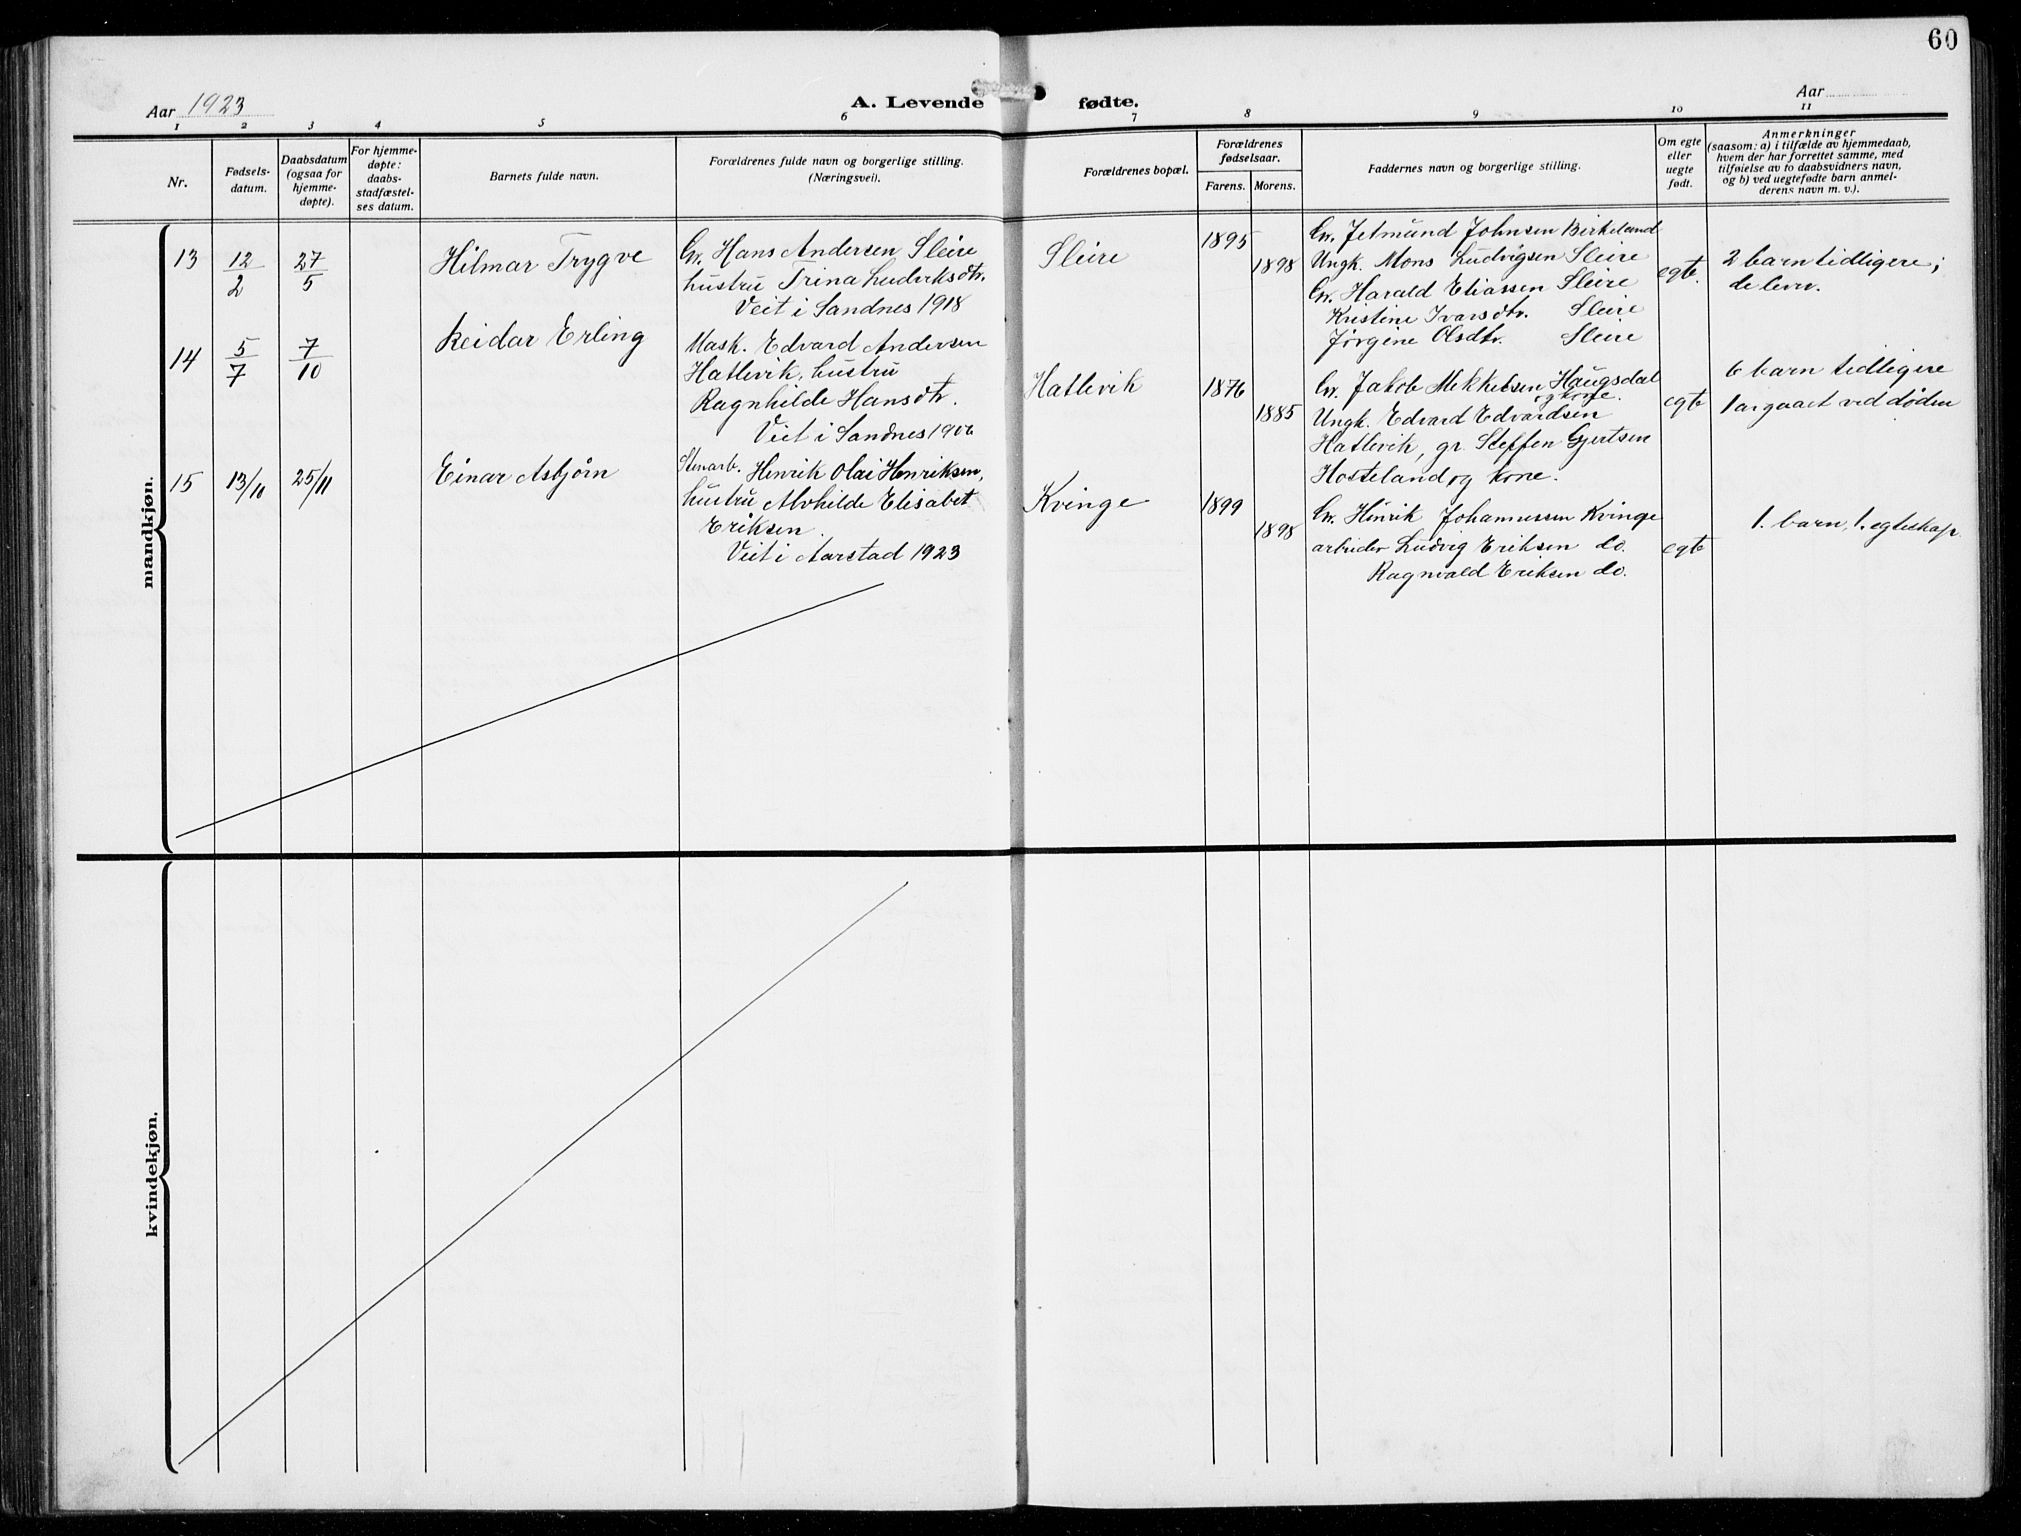 60
Aar 1923
A. Levende fødte.
Aar
1 2 3 4 5 6 7 8 9 10 11
Nr.
Fødsels-
datum.
Daabsdatum
(ogsaa for
hjemme-
døpte).
For hjemme-
døpte:
daabs-
stadfæstel-
ses datum.
Barnets fulde navn.
Forældrenes fulde navn og borgerlige stilling.
(Næringsvei).
Forældrenes bopæl.
Forældrenes
fødselsaar.
Farens. Morens.
Faddernes navn og borgerlige stilling.
Om egte
eller
uegte
født.
Anmerkninger
(saasom: a) i tilfælde av hjemmedaab,
hvem der har forrettet samme, med
tilføielse av to daabsvidners navn,
og b) ved uegtefødte barn anmel-
derens navn m. v.).
mandkjøn.
13
12/2
27/5
Hilmar Trygve
Gr. Hans Andersen Sleire
hustru Trina Ludviksdtr.
Veit i Sandnes 1918
Sleire
1895
1898
Gr. Jetmund Johnsen Birkeland
Ungk. Mons Ludvigsen Sleire
Gr. Harald Eliassen Sleire
Kristine Ivarsdtr. Sleire
Jørgine Olsdtr. Sleire
egte.
2 barn tidligere;
de lever.
14
5/7
7/10
Reidar Erling
Mask. Edvard Andersen
Hatlevik, hustru
Ragnhilde Hansdtr.
Veit i Sandnes 1906
Hatlevik
1876
1885
Gr. Jakob Mekkelsen Haugsdal
og kone.
Ungk. Edvard Edvardsen
Hatlevik, gr. Steffen Gjertsen
Hosteland og kone.
egte
6 barn tidligere
1 avgaaet ved døden
15
13/10
25/11
Einar Asbjørn
Stenarb. Henrik Olai Henriksen,
hustru Alvhilde Elisabet
Eriksen.
Veit i Aarstad 1923
Kvinge
1899
1898
Gr. Hinrik Johannessen Kvinge
arbeider Ludvig Eriksen do.
Ragnvald Eriksen do.
egte
1. barn, 1. egteskap.
kvindekjøn.